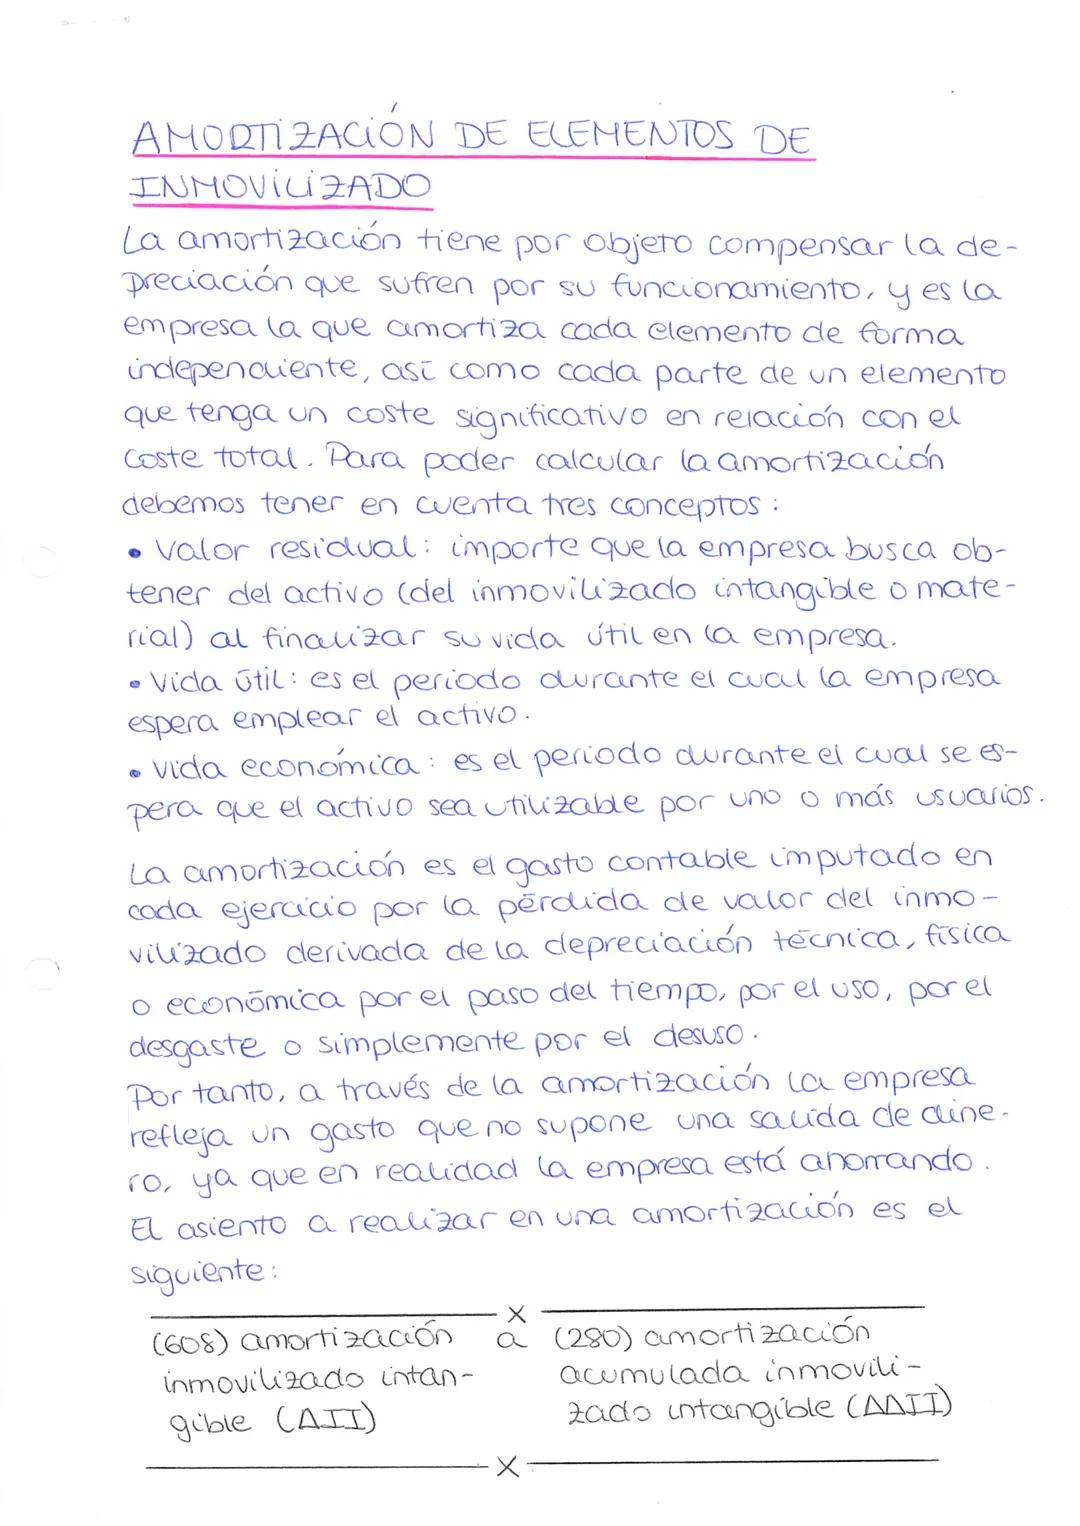 AMORTIZACIÓN DE ELEMENTOS DE
INMOVILIZADO
La amortización tiene por objeto compensar la de-
preciación que sufren por su funcionamiento, y es la
empresa la que amortiza cada elemento de forma
independiente, así como cada parte de un elemento
que tenga un coste significativo en relación con el
coste total. Para poder calcular la amortización
debemos tener en cuenta tres conceptos:
• Valor residual: importe que la empresa busca ob-
tener del activo (del inmovilizado intangible o mate-
rial) al finalizar su vida útil en la empresa.
• Vida útil: es el periodo durante el cual la empresa
espera emplear el activo.
• Vida económica: es el periodo durante el cual se es-
pera que el activo sea utilizable por uno o más usuarios.
La amortización es el gasto contable imputado en
cada ejercicio por la pérdida de valor del inmo-
vilizado derivada de la depreciación técnica, física
o económica por el paso del tiempo, por el uso, por el
desgaste o simplemente por el desuso.
Por tanto, a través de la amortización la empresa
refleja un gasto que no supone una salida de dine-
ro, ya que en realidad la empresa está ahorrando.
El asiento a realizar en una amortización es el
siguiente:
x
(608) amortización a (280) amortización
inmovilizado intan- acumulada inmovili-
gible (AII) zado intangible (AAII)
x